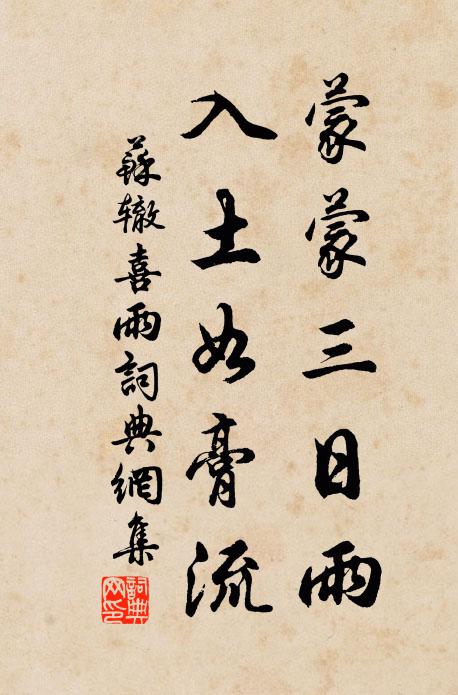 蒙蒙三日雨
入土如膏流
蘇辙喜雨詞典網集
詞典网印